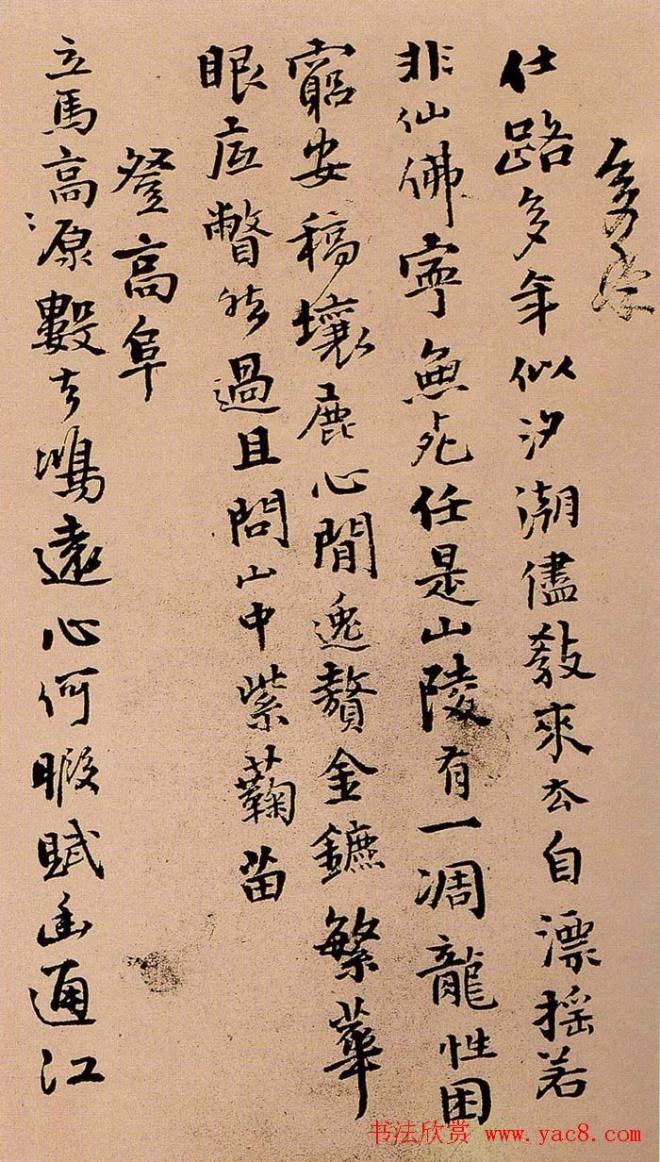 多
仕路多年似汐潮儘教來去自漂搖若
非仙佛寧無死任是山陵有一凋龍性困
窮安稿壤鹿心閒逸贅金鑣繁華
眼底瞥然過且問山中紫蘜苗
登高阜
立馬高源數去鴻遠心何暇賦幽通江
书法欣赏 www.yac8.com